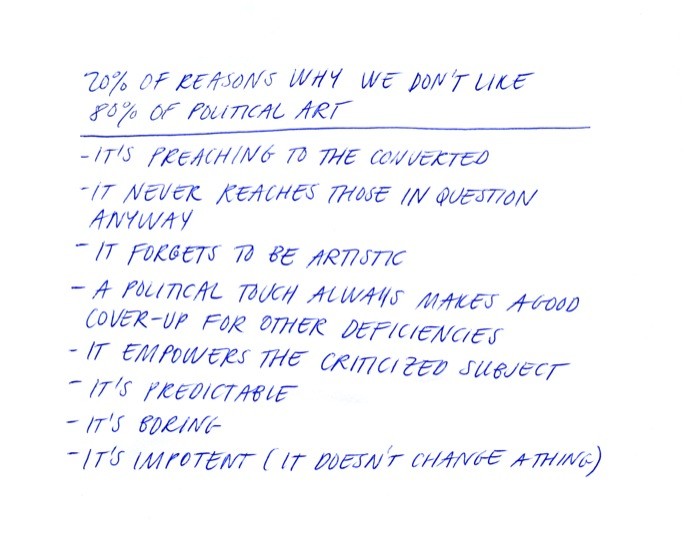 20% OF REASONS WHY WE DON'T LIKE
80% OF POLITICAL ART
- IT'S PREACHING TO THE CONVERTED
- IT NEVER REACHES THOSE IN QUESTION
ANYWAY
- IT FORGETS TO BE ARTISTIC
- A POLITICAL TOUCH ALWAYS MAKES A GOOD
COVER-UP FOR OTHER DEFICIENCIES
- IT EMPOWERS THE CRITICIZED SUBJECT
- IT'S PREDICTABLE
- IT'S BORING
- IT'S IMPOTENT (IT DOESN'T CHANGE A THING)